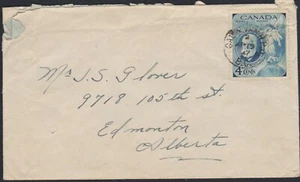 CANADA
4
Mr J. S. Glover
9718 105th St.
Edmonton
Alberta